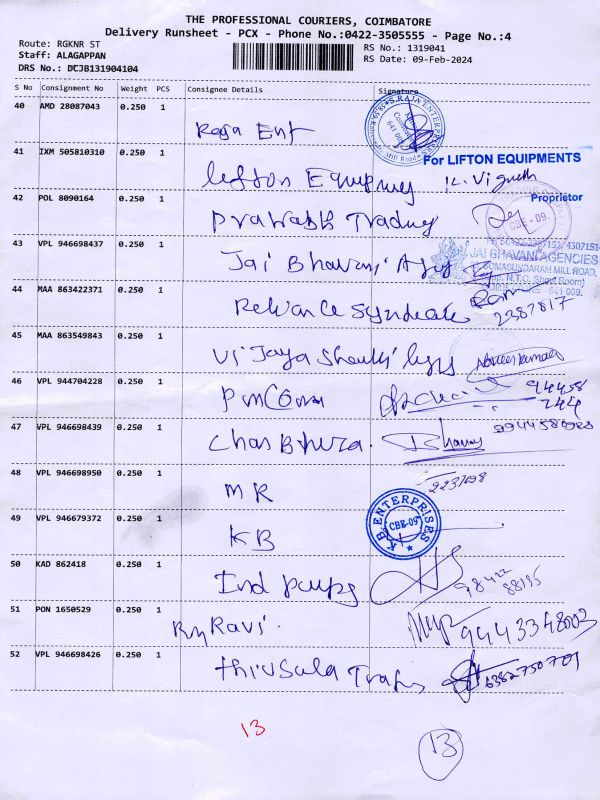 THE PROFESSIONAL COURIERS, COIMBATORE
Delivery Runsheet - PCX - Phone No.:0422-3505555 - Page No.:4
Route: RGKNR ST
RS No.: 1319041
Staff: ALAGAPPAN
RS Date: 09-Feb-2024
DRS No.: DCJB131904104
S No Consignment No Weight PCS Consignee Details Signature
40 AMD 28087043 0.250 1
Raja Ent
S.RAJA ENTERPRISES
641 009
41 IXM 505810310 0.250 1
For LIFTON EQUIPMENTS
lifton Equipmy K. Vignesh
42 POL 8090164 0.250 1 Proprietor
Prakash Trading
CBE - 09.
43 VPL 946698437 0.250 1
JAI BHAVANI AGENCIES
Jai Bhavani Agy
SOMASUNDARAM MILL ROAD,
(Opp. N.T.C. Show Room)
COIMBATORE - 641 009.
44 MAA 863422371 0.250 1
Reliance Syndicate Ram
2387817
45 MAA 863549843 0.250 1
Vijaya Shanthi
46 VPL 944704228 0.250 1
94458
244
47 VPL 946698439 0.250 1
48 VPL 946698950 0.250 1
MR
49 VPL 946679372 0.250 1
K.B. ENTERPRISES
CBE-09
KB
50 KAD 862418 0.250 1
Ind pumps 98422
88195
51 PON 1650529 0.250 1
Ravi 9443348003
52 VPL 946698426 0.250 1
thirsula Traders 6382750701
13
13